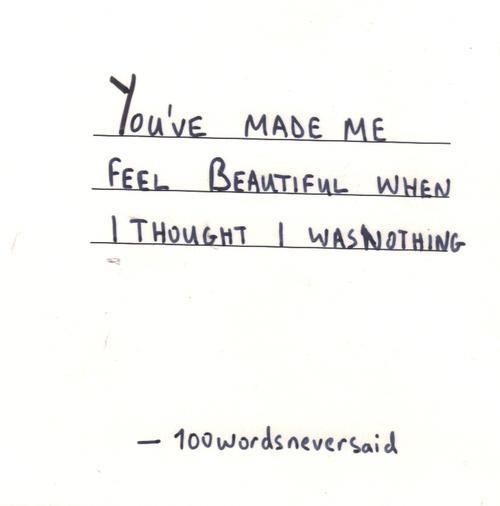 You've MADE ME
FEEL BEAUTIFUL WHEN
I THOUGHT I WAS NOTHING
— 100wordsneversaid